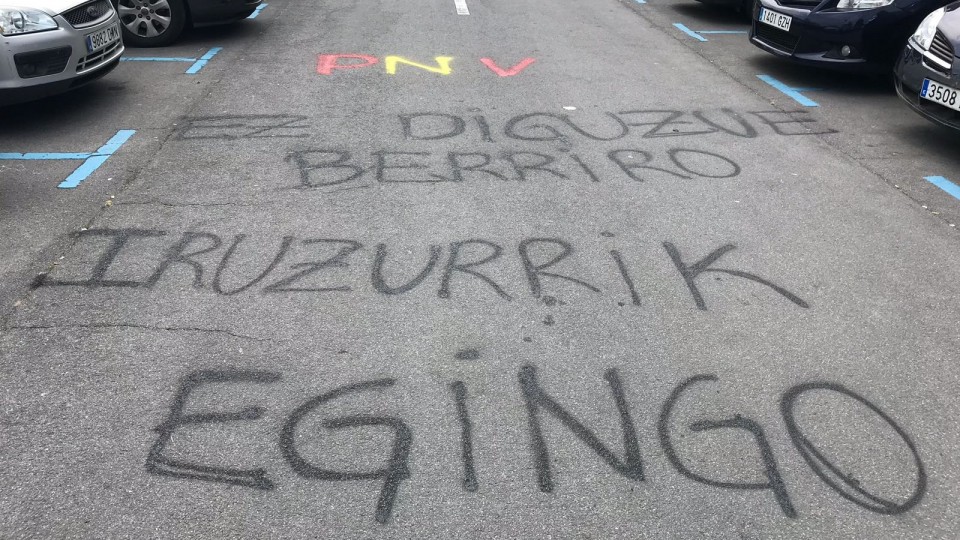 PNV
EZ DiGUZUE
BERRiRO
IRUZURRiK
EGiNGO
9882 DMV
1401 GZH
3508